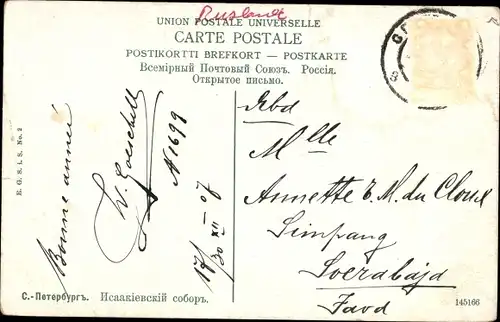 Rusland
UNION POSTALE UNIVERSELLE
CARTE POSTALE
POSTIKORTTI BREFKORT — POSTKARTE
Всемірный Почтовый Союзъ. Россія.
Открытое письмо.
E. G. S. i. S. No. 2
Bonne année
W. Goeschell
N 1699
17/30 XII — 07
Mlle
Annette E. M. du Cloux
Simpang
Soerabaja
Java
С.-Петербургъ. Исаакіевскій соборъ.
145166